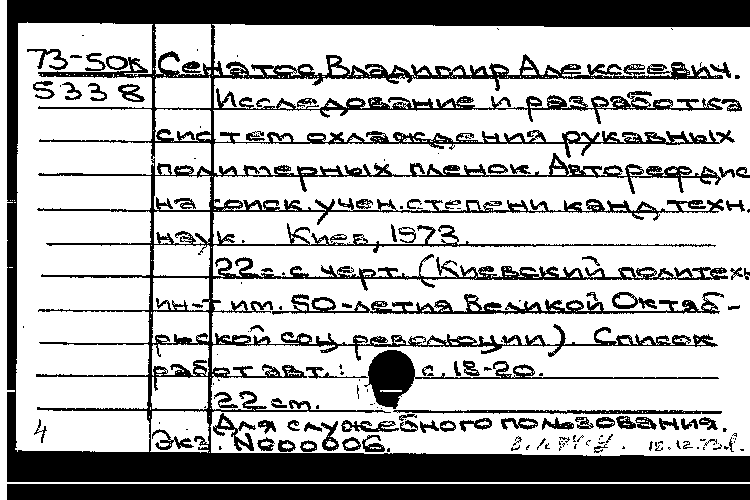 73-50к Сенатос, Владимир Алексеевич.
5338 Исследование и разработка
систем охлаждения рукавных
полимерных пленок. Автореф. дис
на соиск. учен. степени канд. техн.
наук. Киев, 1973.
22 с. с черт. (Киевский политехн
ин-т им. 50-летия Великой Октяб-
рьской соц. революции). Список
работ авт.: с. 18-20.
22 см.
Для служебного пользования.
4 Экз. N000006. 18.12.73